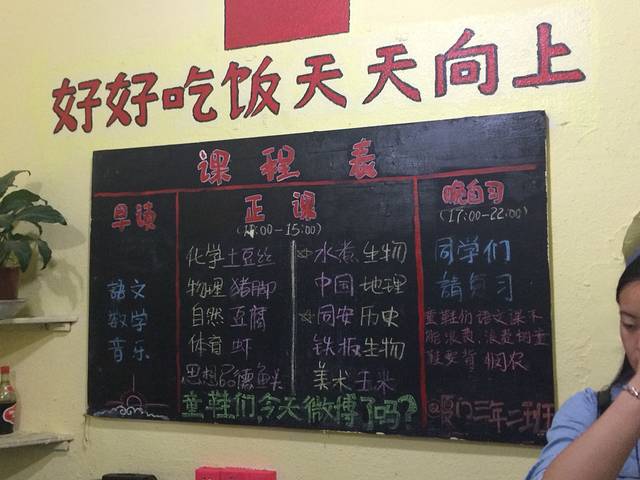 好好吃饭天天向上
课程表
早读
语文
数学
音乐
正课
(11:00-15:00)
化学土豆丝
物理猪脚
自然豆腐
体育虾
思想品德鱼头
水煮生物
中国地理
同安历史
铁板生物
美术玉米
晚自习
(17:00-22:00)
同学们
請复习
童鞋们语文课不
能浪费.浪费
鞋要背悯农
童鞋们,今天微博了吗?
@厦门三年二班